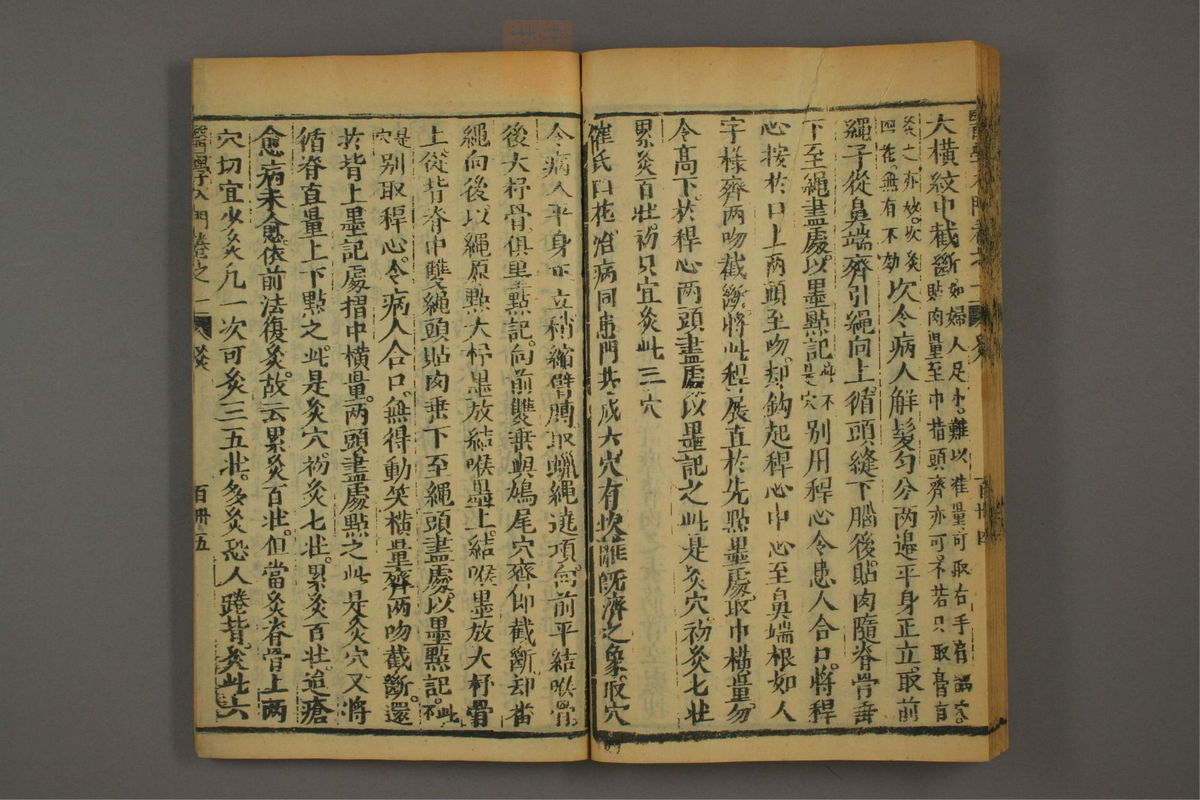 醫學入門卷之一 灸 百卅四
大橫紋中截斷如婦人足小難以准量可取右手肩
貼肉量至中指頭齊亦可不若只取膏肓
灸之亦妙次灸
四花無有不効次令病人解髮勻分兩邊平身正立取前
繩子從鼻端齊引繩向上循頭縫下腦後貼肉隨脊骨垂
下至繩盡處以墨點記此不是穴別用稈心令患人合口將稈
心按於口上兩頭至吻却鈎起稈心中心至鼻端根如人
字樣齊兩吻截斷將此稈展直於先點墨處取中橫量勿
令高下於稈心兩頭盡處以墨記之此是灸穴初灸七壯
累灸百壯初只宜灸此三穴
崔氏四花治病同患門共成六穴有坎離既濟之象取穴
令病人平身正立稍縮臂膊取蠟繩遶項向前平結喉骨
後大杼骨俱墨點記向前雙垂與鳩尾穴齊仰截斷却番
繩向後以繩原點大杼墨放結喉墨上結喉墨放大杼骨
上從背脊中雙繩頭貼肉垂下至繩頭盡處以墨點記此不
是穴別取稈心令病人合口無得動笑橫量齊兩吻截斷還
於背上墨記處摺中橫量兩頭盡處點之此是灸穴又將
循脊直量上下點之此是灸穴初灸七壯累灸百壯迨瘡
愈病未愈依前法復灸故云累灸百壯但當灸脊骨上兩
穴切宜少灸凡一次可灸三五壯多灸恐人踡背灸此六
醫學入門卷之一 灸 百卅五